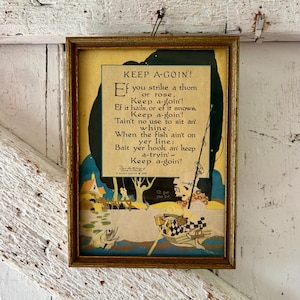 KEEP A-GOIN!
Ef you strike a thorn
or rose,
Keep a-goin'!
Ef it hails, or ef it snows,
Keep a-goin'!
Taint no use to sit an'
whine,
When the fish ain't on
yer line;
Bait yer hook an' keep
a-tryin'—
Keep a-goin'!